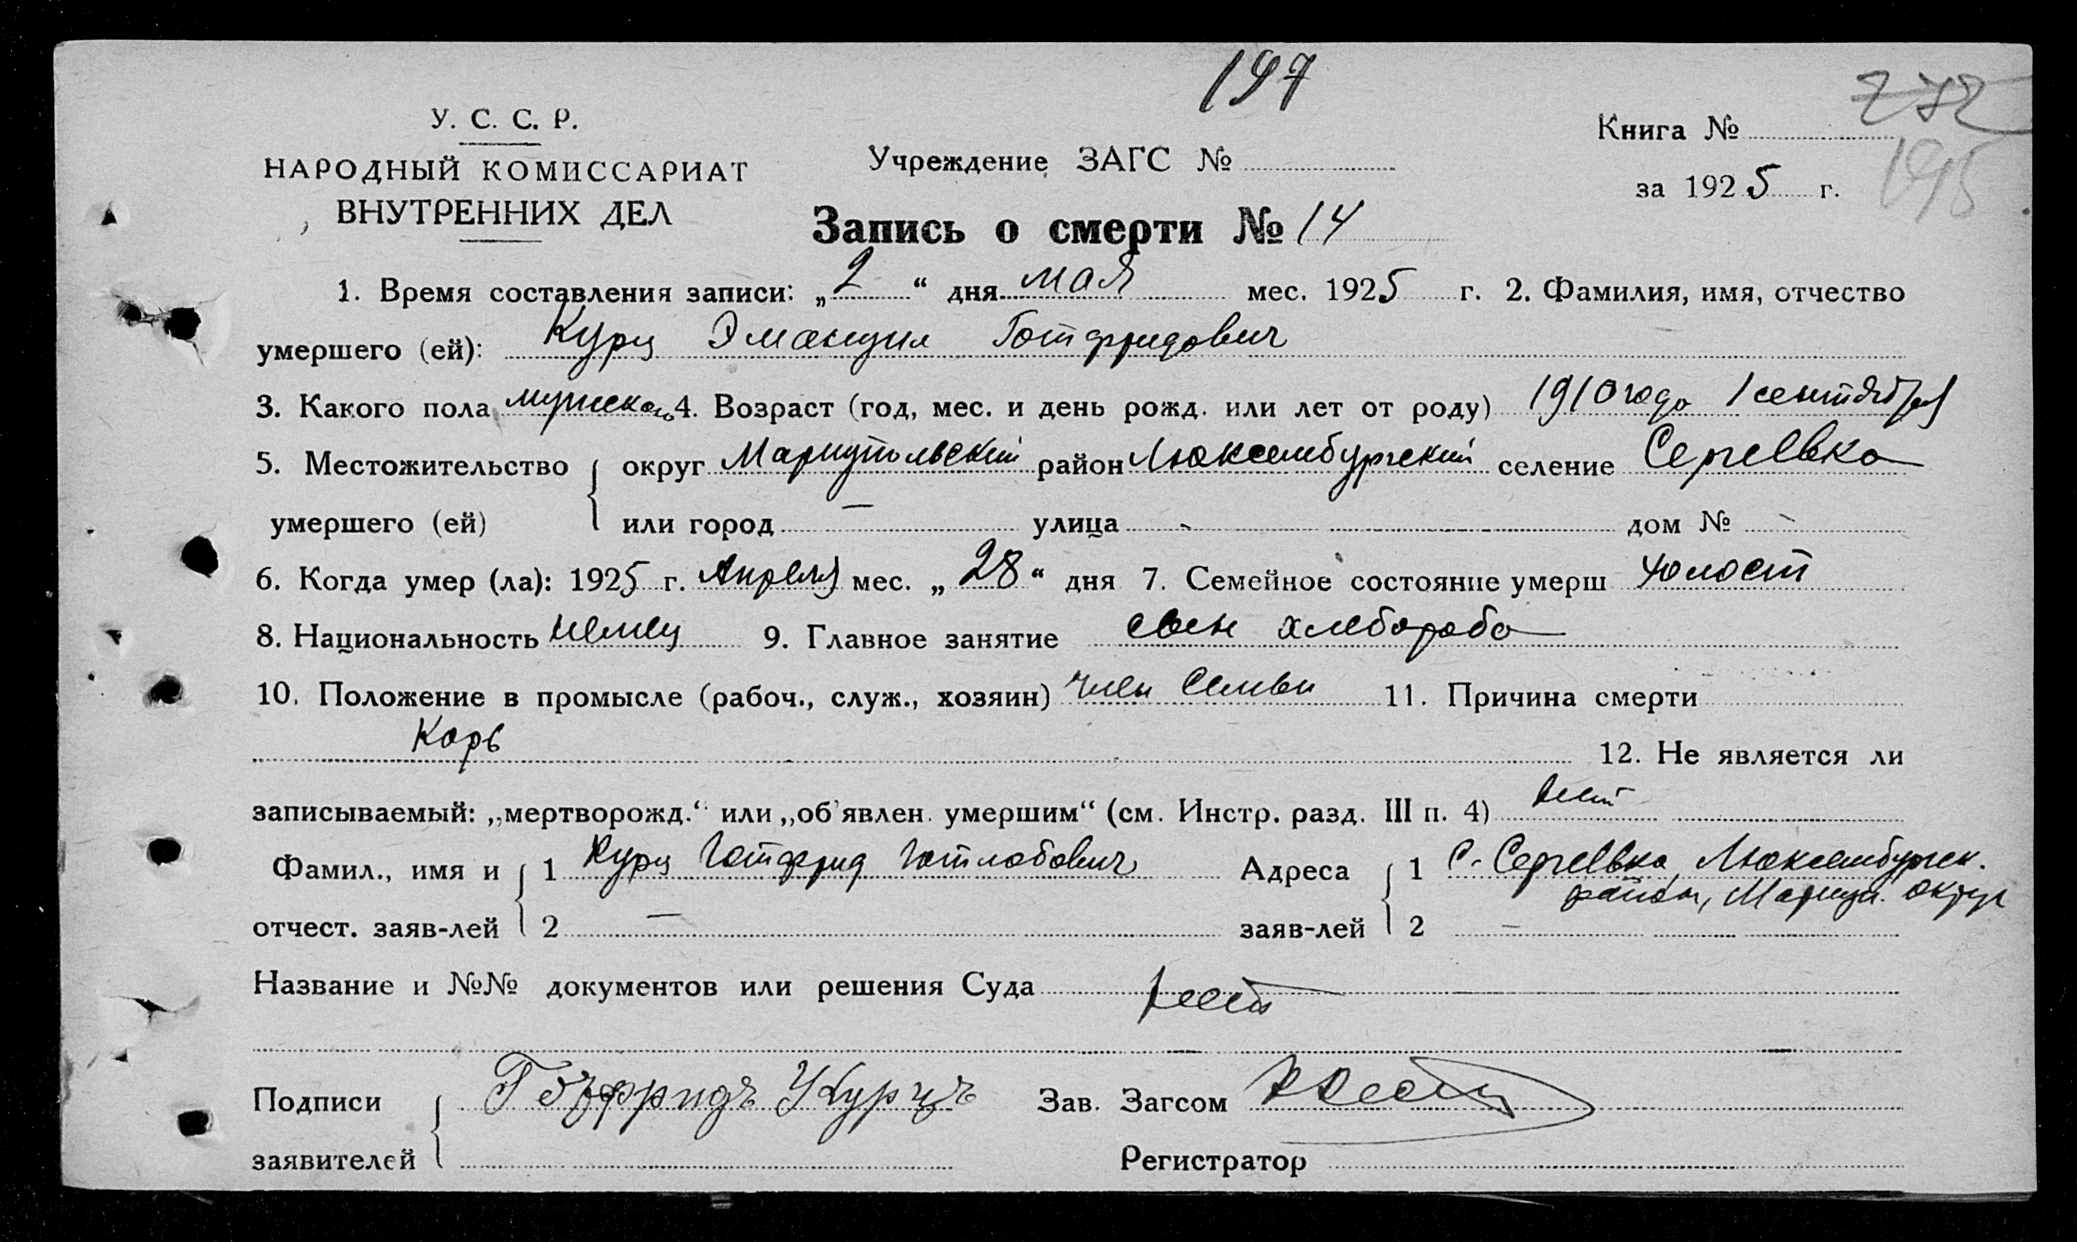 197
У. С. С. Р.
НАРОДНЫЙ КОМИССАРИАТ
ВНУТРЕННИХ ДЕЛ
Учреждение ЗАГС №
Книга № 272
195
за 1925 г.
Запись о смерти № 14
1. Время составления записи: „2“ дня мая мес. 1925 г. 2. Фамилия, имя, отчество
умершего (ей): Курц Эмануил Готфридович
3. Какого пола мужского 4. Возраст (год, мес. и день рожд. или лет от роду) 1910 года 1 сентября
5. Местожительство округ Мариупольский район Люксембургский селение Сергеевка
умершего (ей) или город — улица - дом № -
6. Когда умер (ла): 1925 г. Апреля мес. „28“ дня 7. Семейное состояние умерш холост
8. Национальность немец 9. Главное занятие сын хлебороба
10. Положение в промысле (рабоч., служ., хозяин) член семьи 11. Причина смерти
Корь 12. Не является ли
записываемый: „мертворожд.“ или „об'явлен. умершим“ (см. Инстр. разд. III п. 4) нет
Фамил., имя и 1 Курц Готфрид Готлобович Адреса 1 с. Сергеевка, Люксембургск.
район, Мариуп. округ
отчест. заяв-лей 2 — заяв-лей 2 -
Название и №№ документов или решения Суда нет
Подписи Готфридъ Курцъ Зав. Загсом
заявителей Регистратор